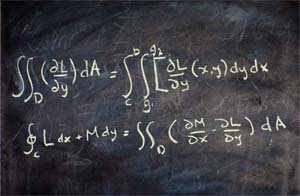 ∬_D (∂L/∂y) dA = ∫_c^b ∫_{g₁}^{g₂} ∂L/∂y (x,y) dy dx
∮_c L dx + M dy = ∬_D (∂M/∂x - ∂L/∂y) dA